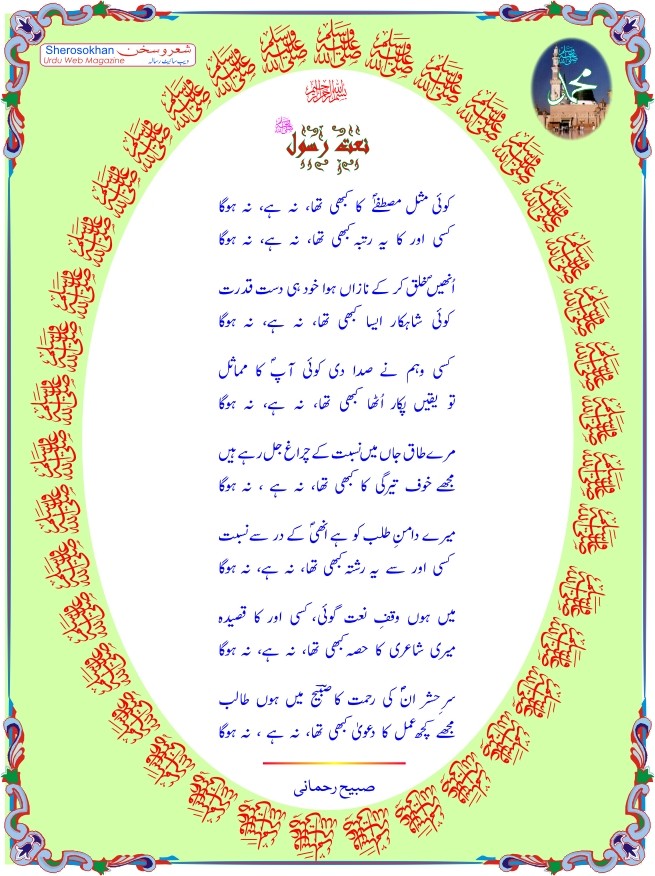 Sherosokhan شعر و سخن
Urdu Web Magazine ویب سائیٹ رسالہ
محمد
بسم اللہ الرحمن الرحیم
نعت رسول
کوئی مثل مصطفےٰؐ کا کبھی تھا، نہ ہے، نہ ہوگا
کسی اور کا یہ رتبہ کبھی تھا، نہ ہے، نہ ہوگا
اُنھیںؐ خلق کر کے نازاں ہوا خود ہی دست قدرت
کوئی شاہکار ایسا کبھی تھا، نہ ہے، نہ ہوگا
کسی وہم نے صدا دی کوئی آپؐ کا مماثل
تو یقیں پکار اُٹھا کبھی تھا، نہ ہے، نہ ہوگا
مرے طاق جاں میں نسبت کے چراغ جل رہے ہیں
مجھے خوف تیرگی کا کبھی تھا، نہ ہے ، نہ ہوگا
میرے دامنِ طلب کو ہے انھیؐ کے در سے نسبت
کسی اور سے یہ رشتہ کبھی تھا، نہ ہے، نہ ہوگا
میں ہوں وقفِ نعت گوئی، کسی اور کا قصیدہ
میری شاعری کا حصہ کبھی تھا، نہ ہے، نہ ہوگا
سرِ حشر انؐ کی رحمت کا صبیحؔ میں ہوں طالب
مجھے کچھ عمل کا دعویٰ کبھی تھا، نہ ہے ، نہ ہوگا
صبیح رحمانی